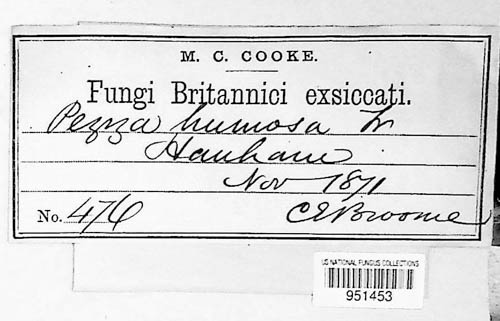 M. C. COOKE.
Fungi Britannici exsiccati.
Peziza humosa Fr
Hanham
Nov 1871
No. 476 CEBroome
US NATIONAL FUNGUS COLLECTIONS
951453